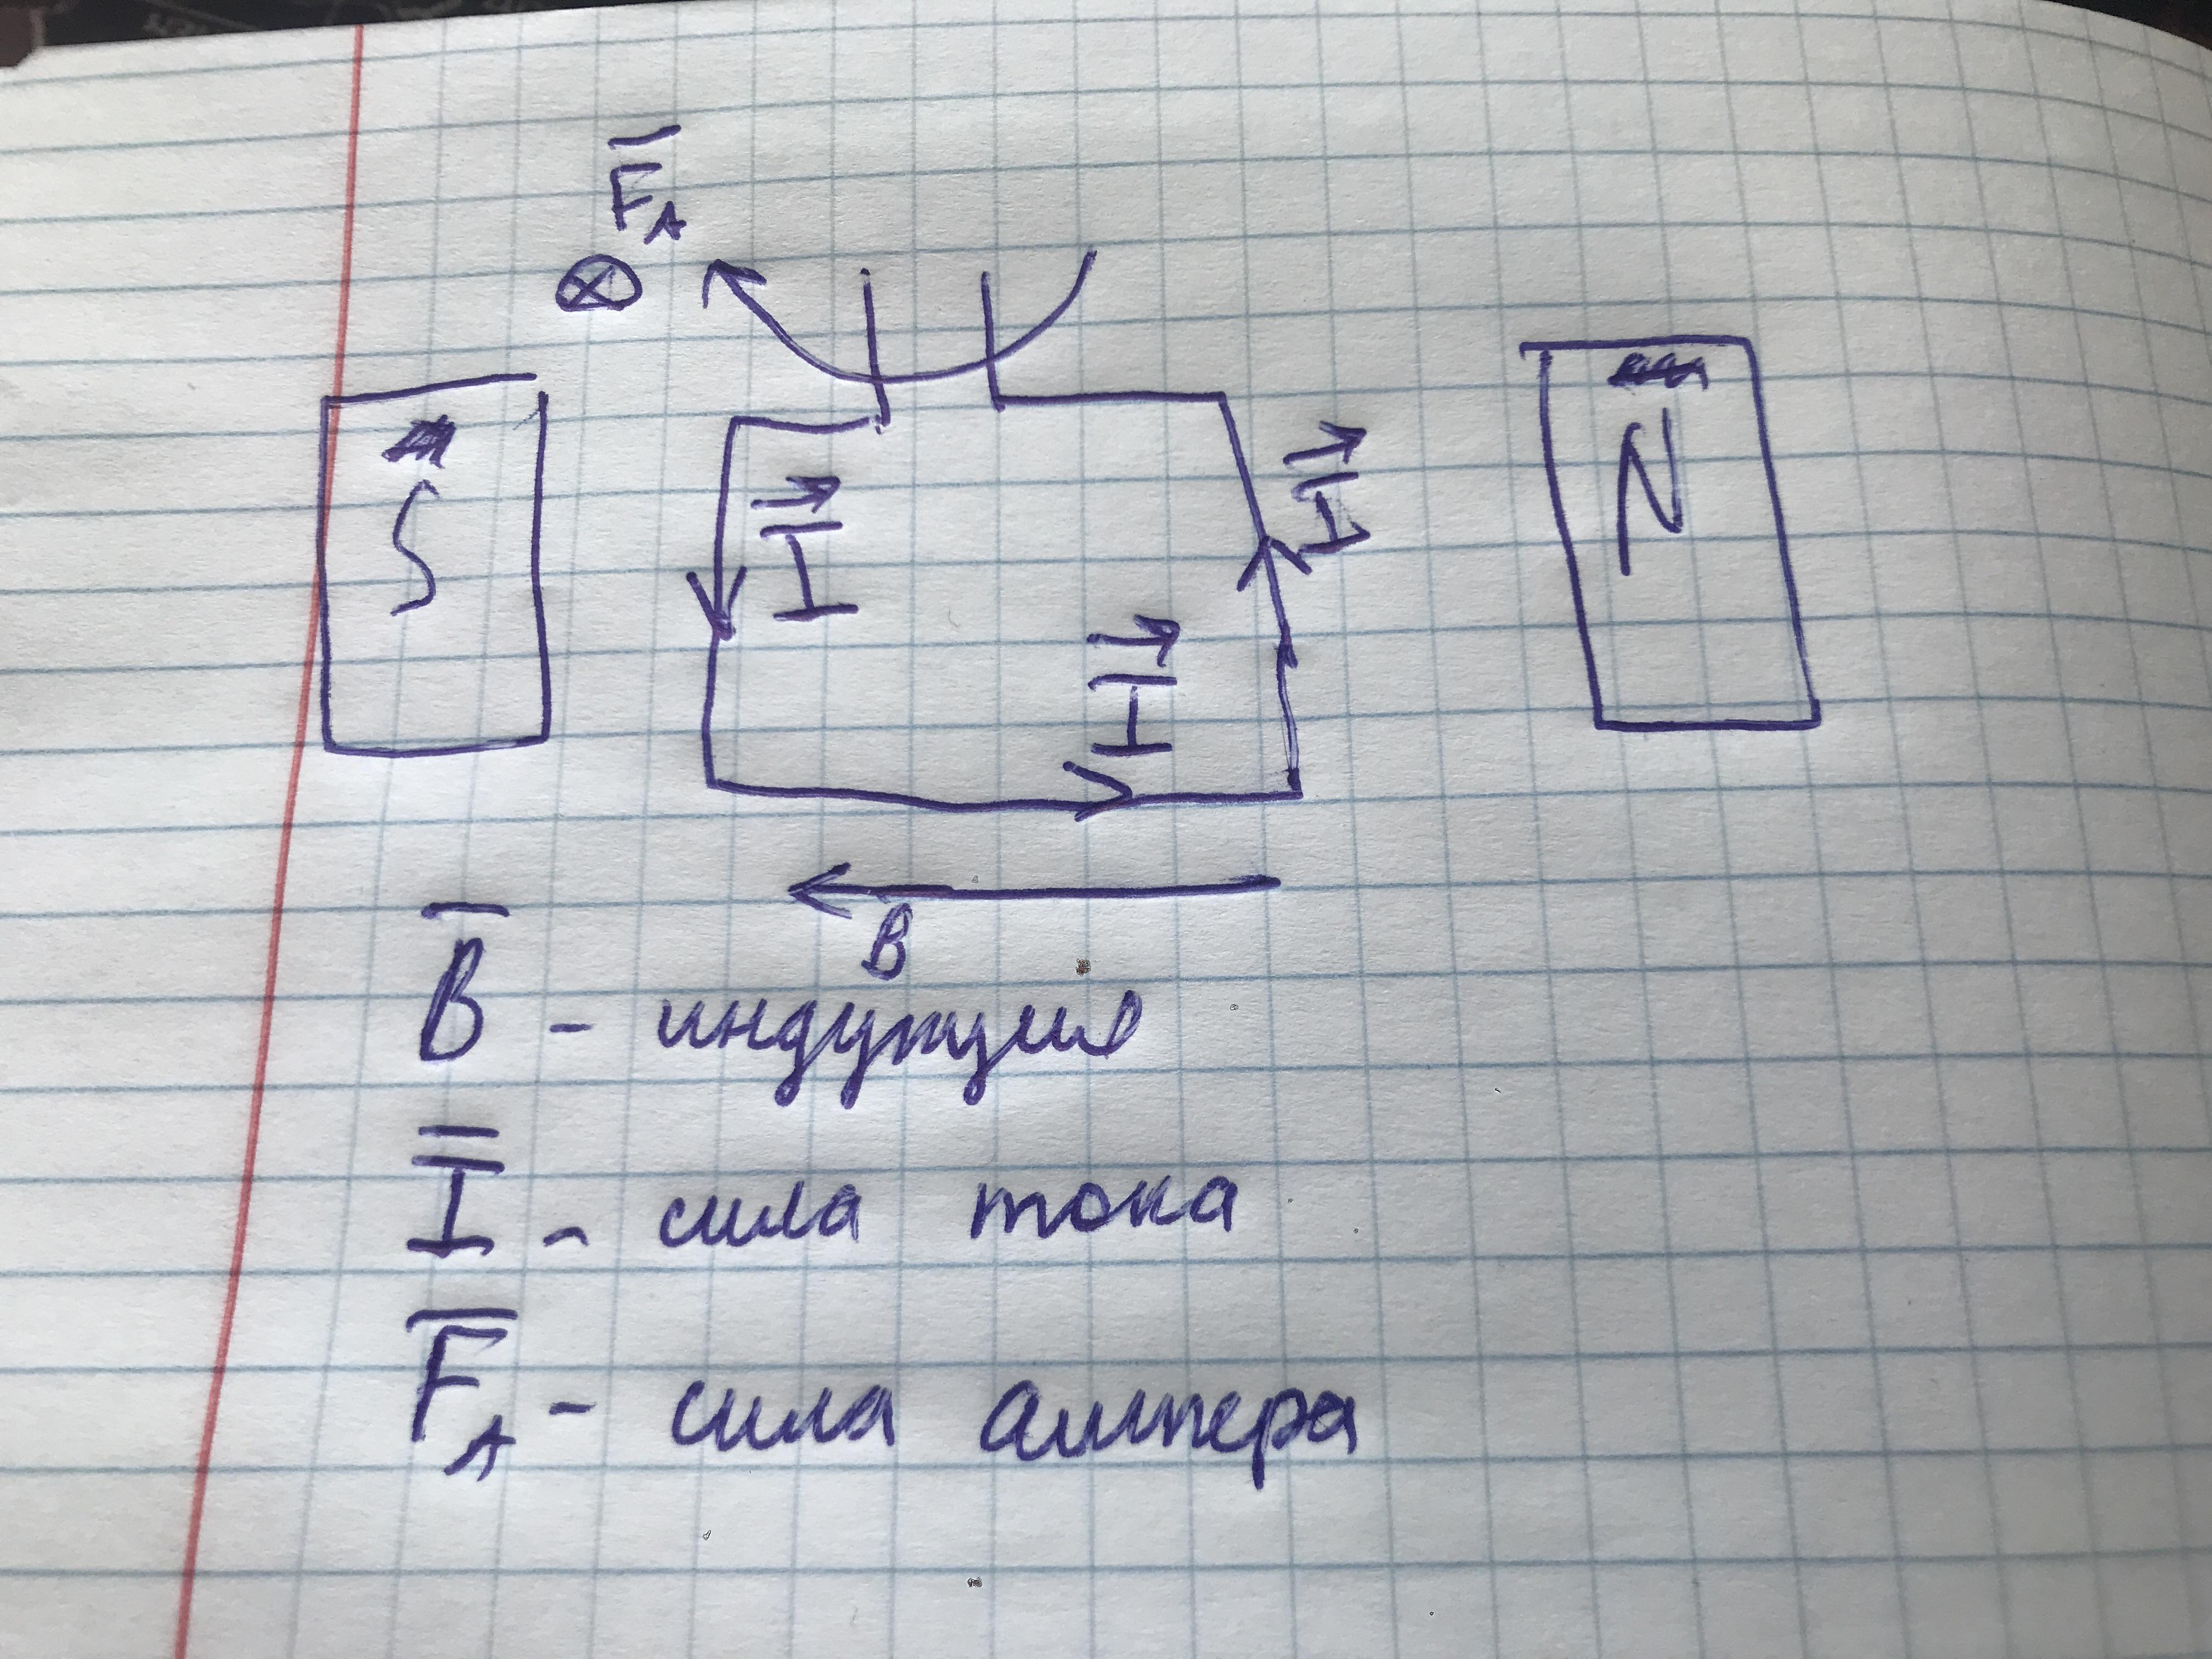 F̅_A
S
N
I⃗
I⃗
I⃗
B
B̅ - индукция
I̅ - сила тока
F̅_A - сила ампера